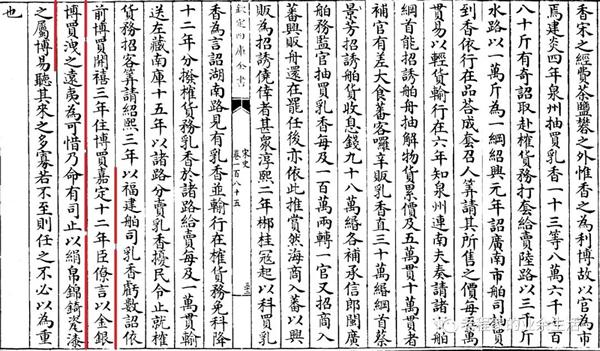 香宋之經費茶鹽礬之外惟香之為利博故以官為市
焉建炎四年泉州抽買乳香一十三等八萬六千七百
八十斤有奇詔取赴榷貨務打套給賣陸路以三千斤
水路以一萬斤為一綱紹興元年詔廣南市舶司抽買
到香依行在品荅成套召人筭請其所售之價每五萬
貫易以輕貨輸行在六年知泉州連南夫奏請諸市舶
綱首能招誘舶舟抽解物貨累價及五萬貫十萬貫者
補官有差大食蕃客囉辛販乳香直三十萬緡綱首蔡
景芳招誘舶貨收息錢九十八萬緡各補承信郎閩廣
舶務監官抽買乳香每及一百萬兩轉一官又招商入
蕃興販舟還在罷任後亦依此推賞然海商入蕃以興
販為招誘僥倖者甚眾淳熙二年郴桂寇起以科買乳
欽定四庫全書
宋史
卷一百八十五
香為言詔湖南路見有乳香並輸行在榷貨務免科降
十二年分撥榷貨務乳香於諸路給賣每及一萬貫輸
送左藏南庫十五年以諸路分賣乳香擾民令止就榷
貨務招客筭請紹熙三年以福建舶司乳香虧數詔依
前博買開禧三年住博買嘉定十二年臣僚言以金銀
博買洩之遠夷為可惜乃命有司止以絹帛錦綺瓷漆
之屬博易聽其來之多寡若不至則任之不必以為重
也